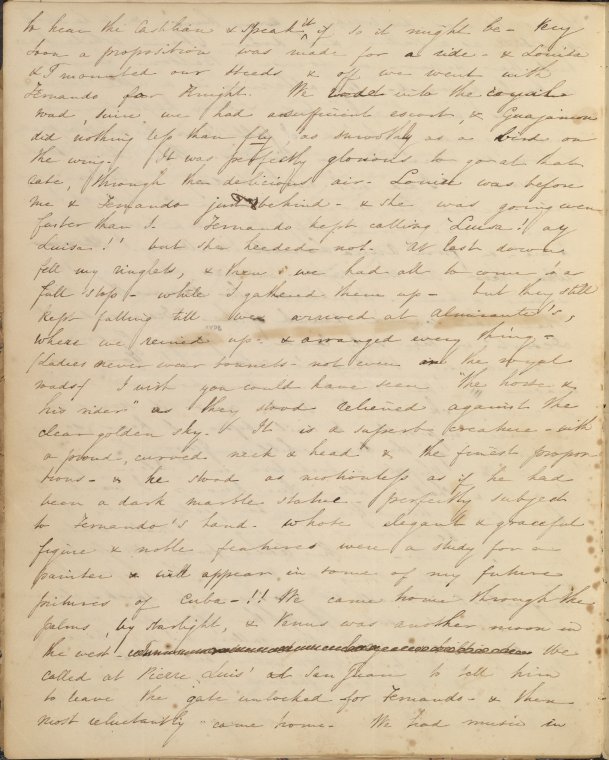 to hear the Castilian & speak it if so it might be - Very
soon a proposition was made for a ride - & Louisa
& I mounted our steeds & off we went with
Fernando for Knight. We rode into the royal
road, since we had a sufficient escort, & Guajamon
did nothing less than fly as smoothly as a bird on
the wing. It was perfectly glorious to go at that
rate, through the delicious air - Louisa was before
me & Fernando just behind - & she was going even
faster than I. Fernando kept calling "Luisa! ay
Luisa!!" but she heeded not. At last down
fell my ringlets, & then we had all to come to a
full stop - while I gathered them up - but they still
kept falling till we arrived at Almirante's,
where we reined up - & arranged every thing -
(Ladies never wear bonnets - not even in the royal
roads) I wish you could have seen "the horse &
his rider" as they stood relieved against the
clear golden sky. It is a superb creature - with
a proud, curved neck & head & the finest propor
tions - & he stood as motionless as if he had
been a dark marble statue - perfectly subject
to Fernando's hand - whose elegant & graceful
figure & noble features were a study for a
painter & will appear in some of my future
pictures of Cuba - !! We came home through the
palms, by starlight, & Venus was another moon in
the west - We
called at Pierre Luis' at San Juan to tell him
to leave the gate unlocked for Fernando - & then
most reluctantly came home. We had music in